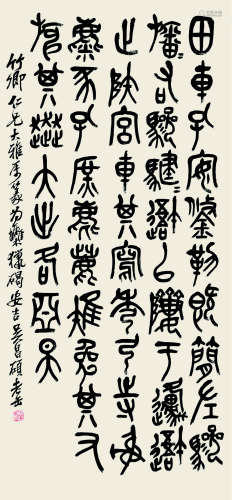 田車孔安鋚勒既簡左驂
旛〻右驂騝〻避以隮于邍避
止陜宮車其寫秀弓寺射
麋豕孔庶麀鹿雉兔其又
其大出各亞
竹卿仁兄大雅屬篆為臨獵碣安吉吳昌碩老缶